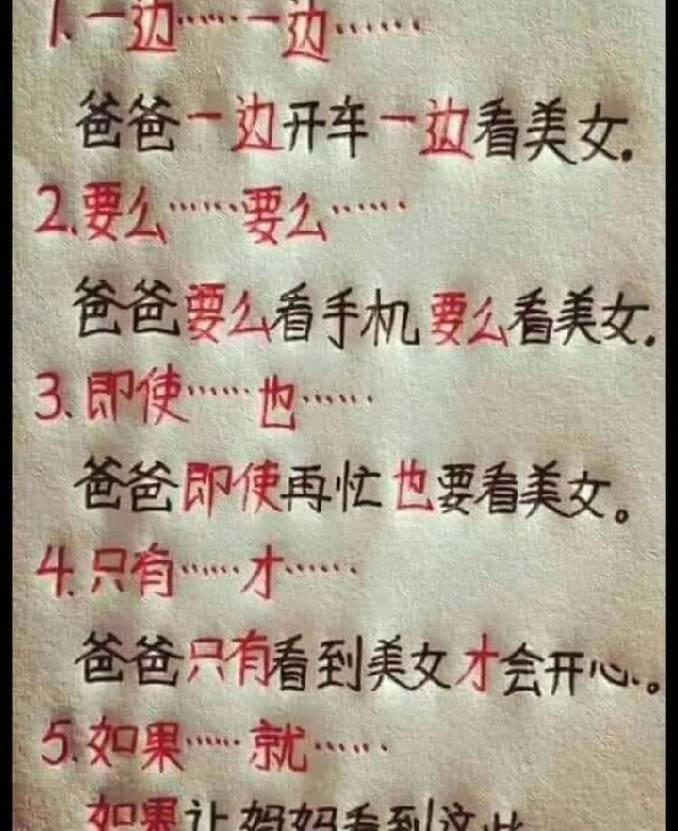 1.一边……一边……
爸爸一边开车一边看美女.
2.要么……要么……
爸爸要么看手机要么看美女.
3.即使……也……
爸爸即使再忙也要看美女。
4.只有……才……
爸爸只有看到美女才会开心.。
5.如果……就……
如果让妈妈看到这些